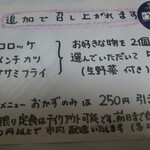 追加で召し上がれます
コロッケ
メンチカツ
ササミフライ
お好きな物を2個
選んでいただいて
(生野菜 付き)
メニュー おかずのみは 250円 引き
限り定食はテイクアウト可能です。前日まで
円以上で 市内 配達いたします